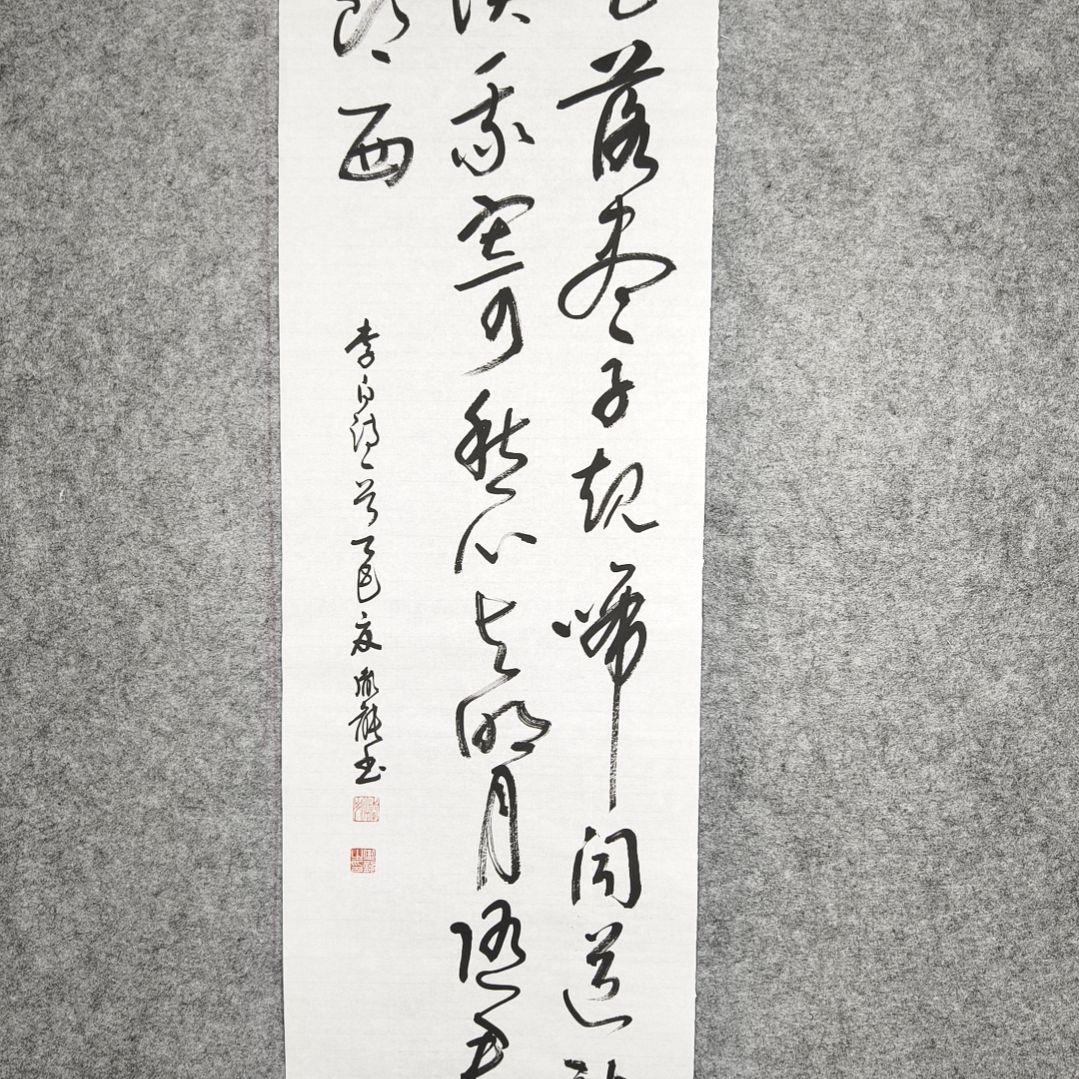 落尽子规啼闻道
溪我寄愁心与明月随君
郎西
李白诗一首乙巳夏